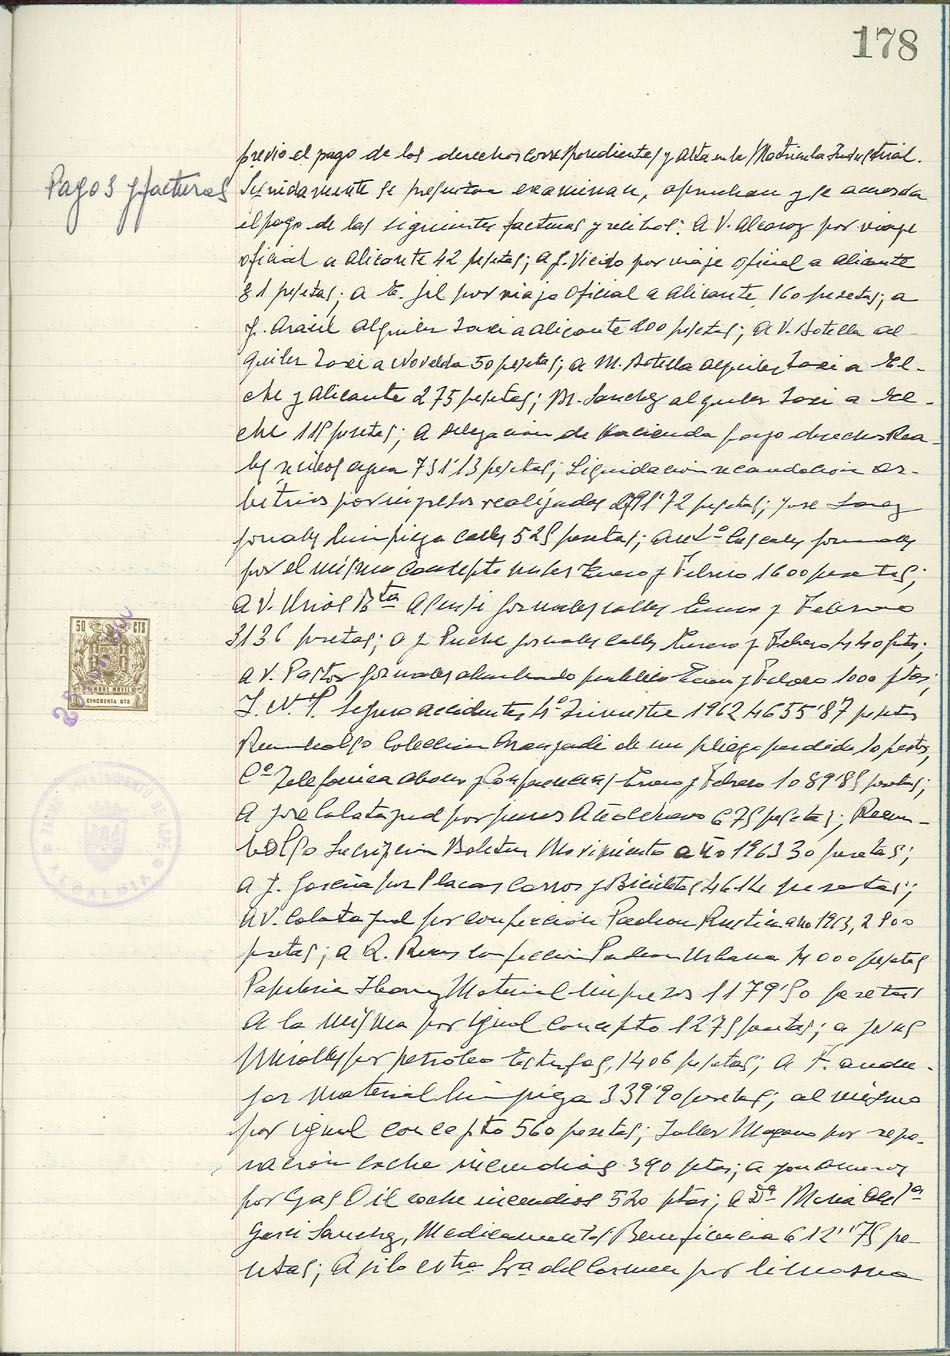 178
previo el pago de los derechos correspondientes y alta en la Matricula Industrial.
Pagos y facturas
Seguidamente se presentan examinan, aprueban y se acuerda
el pago de las siguientes facturas y recibos: A V. Alcaraz por viaje
oficial a Alicante 42 pesetas; a J. Vicedo por viaje oficial a Alicante
81 pesetas; a E. Gil por viaje oficial a Alicante, 160 pesetas; a
J. Aracil alquiler taxi a Alicante 200 pesetas; a V. Botella al-
quiler taxi a Novelda 50 pesetas; a M. Botella alquiler taxi a El-
che y Alicante 275 pesetas; M. Sanchez alquiler taxi a El-
che 115 pesetas; a Delegacion de Hacienda pago derechos Rea-
les agua 731'13 pesetas; Liquidacion recaudacion ar-
bitrios por ingresos realizados 2791'72 pesetas; Jose
jornales limpieza calles 525 pesetas; a jornales
por el mismo concepto meses Enero y Febrero 1600 pesetas;
a V. Bta Asensi jornales calles Enero y Febrero
3136 pesetas; a J. Puche jornales calles Enero y Febrero 440 ptas;
a V. Pastor jornales alumbrado publico Enero y Febrero 1000 ptas;
I.N.P. Seguro accidentes 4º Trimestre 1962 4655'87 pesetas
Reembolso Coleccion Aranzadi de un pliego perdido 10 pesetas,
Cª Telefonica abonos y Conferencias Enero y Febrero 1089'85 pesetas;
a Jose Calatayud por Año Nuevo 675 pesetas; Reem-
bolso Suscripcion Boletin Movimiento año 1963 30 pesetas;
a J. Garcia por Placas Carros y Bicicletas 4614 pesetas;
a V. Calatayud por confeccion Padron Rustica año 1963, 2900
pesetas; a R. confeccion Padron Urbana 4000 pesetas
Papeleria Material Impresos 1179'50 pesetas
a la misma por igual concepto 1275 pesetas; a
Miralles por petroleo Estufas, 1406 pesetas; a F. Andu-
jar material limpieza 339'90 pesetas; al mismo
por igual concepto 560 pesetas; Taller por repa-
racion coche incendios 390 ptas; a
por Gas Oil coche incendios 520 ptas; a Dª Maria
Sanchez, Medicamentos Beneficencia 612'75 pe-
setas; Asilo Ntra Sra del Carmen por limosna
50 CTS
TIMBRE MOVIL
CINCUENTA CTS
AYUNTAMIENTO DE
ALCALDIA